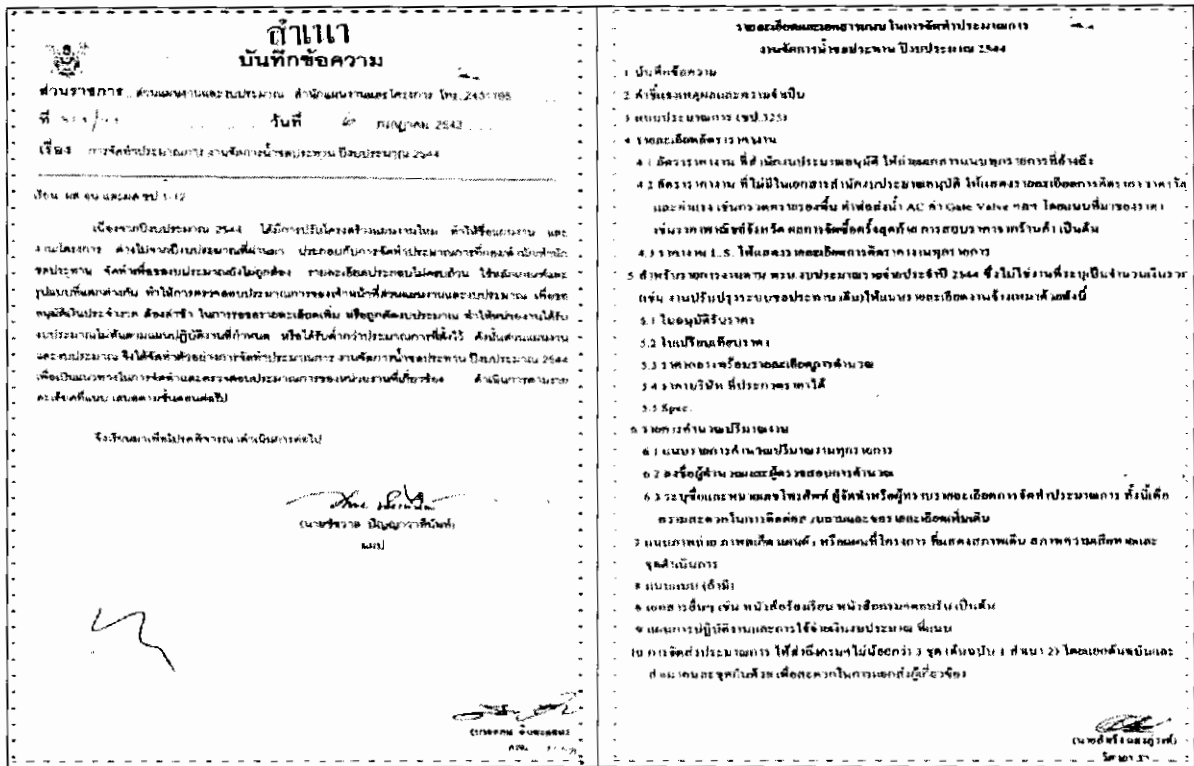 สำเนา
บันทึกข้อความ
ส่วนราชการ ส่วนแผนงานและงบประมาณ สำนักแผนงานและโครงการ โทร.
ที่ วันที่ กรกฎาคม 2542
เรื่อง การจัดทำประมาณการ งานจัดการน้ำชลประทาน ปีงบประมาณ 2544
เรียน ผส.ชป 1-12
เนื่องจากปีงบประมาณ 2544 ได้มีการปรับโครงสร้างแผนงานใหม่ ทำให้ชื่อแผนงาน และ
งาน/โครงการ ต่างไปจากปีงบประมาณที่ผ่านมา ประกอบกับการจัดทำประมาณการที่กอง/สำนัก/สำนัก
ชลประทาน จัดทำเพื่อของบประมาณยังไม่ถูกต้อง รายละเอียดประกอบไม่ครบถ้วน ใช้หลักเกณฑ์และ
รูปแบบที่แตกต่างกัน ทำให้การตรวจสอบประมาณการของเจ้าหน้าที่ส่วนแผนงานและงบประมาณ เพื่อขอ
อนุมัติเงินประจำงวด ต้องล่าช้า ในการขอรายละเอียดเพิ่ม หรือถูกตัดงบประมาณ ทำให้หน่วยงานได้รับ
งบประมาณไม่ทันตามแผนปฏิบัติงานที่กำหนด หรือได้รับต่ำกว่าประมาณการที่ตั้งไว้ ดังนั้นส่วนแผนงาน
และงบประมาณ จึงได้จัดทำตัวอย่างการจัดทำประมาณการ งานจัดการน้ำชลประทาน ปีงบประมาณ 2544
เพื่อเป็นแนวทางในการจัดทำและตรวจสอบประมาณการของหน่วยงานที่เกี่ยวข้อง ดำเนินการตามราย
ละเอียดที่แนบ เสนอตามขั้นตอนต่อไป
จึงเรียนมาเพื่อโปรดพิจารณาดำเนินการต่อไป
(นายชัชวาล ปัญญาวาทีนันท์)
ผผป
รายละเอียดและเอกสารแนบ ในการจัดทำประมาณการ
งานจัดการน้ำชลประทาน ปีงบประมาณ 2544
1 บันทึกข้อความ
2 คำชี้แจงเหตุผลและความจำเป็น
3 แบบประมาณการ (ชป.325)
4 รายละเอียดอัตราราคางาน
4.1 อัตราราคางาน ที่สำนักงบประมาณอนุมัติ ให้ถ่ายเอกสารแนบทุกรายการที่อ้างถึง
4.2 อัตราราคางาน ที่ไม่มีในเอกสารสำนักงบประมาณอนุมัติ ให้แสดงรายละเอียดการคิดราคา ราคาวัสดุ
และค่าแรง เช่นกรวดทรายรองพื้น ค่าท่อส่งน้ำ AC ค่า Gate Valve ฯลฯ โดยแนบที่มาของราคา
เช่นราคาพาณิชย์จังหวัด ผลการจัดซื้อครั้งสุดท้าย การสอบราคาจากร้านค้า เป็นต้น
4.3 ราคางาน L.S. ให้แสดงรายละเอียดการคิดราคางานทุกรายการ
5 สำหรับรายการงานตาม พรบ.งบประมาณรายจ่ายประจำปี 2544 ซึ่งไม่ใช่งานที่ระบุเป็นจำนวนเงินรวม
(เช่น งานปรับปรุงระบบชลประทานเดิม) ให้แนบรายละเอียดงานจ้างเหมาด้วยดังนี้
5.1 ใบอนุมัติรับราคา
5.2 ใบเปรียบเทียบราคา
5.3 ราคากลางพร้อมรายละเอียดการคำนวณ
5.4 ราคาบริษัท ที่ประกวดราคาได้
5.5 Spec.
6 รายการคำนวณปริมาณงาน
6.1 แนบรายการคำนวณปริมาณงานทุกรายการ
6.2 ลงชื่อผู้คำนวณและผู้ตรวจสอบการคำนวณ
6.3 ระบุชื่อและหมายเลขโทรศัพท์ ผู้จัดทำหรือผู้ทราบรายละเอียดการจัดทำประมาณการ ทั้งนี้เพื่อ
ความสะดวกในการติดต่อสอบถามและขอรายละเอียดเพิ่มเติม
7 แนบภาพถ่าย ภาพสเก็ต แผนผัง หรือแผนที่โครงการ ที่แสดงสภาพเดิม สภาพความเสียหายและ
จุดดำเนินการ
8 แนบแบบ (ถ้ามี)
เอกสารอื่นๆ เช่น หนังสือร้องเรียน หนังสือกรมฯตอบรับ เป็นต้น
9 แผนการปฏิบัติงานและการใช้จ่ายเงินงบประมาณ ที่แนบ
10 การจัดส่งประมาณการ ให้ส่งถึงกรมฯไม่น้อยกว่า 3 ชุด (ต้นฉบับ 1 สำเนา 2) โดยแยกต้นฉบับและ
สำเนาคนละชุดกันด้วย เพื่อสะดวกในการแยกส่งผู้เกี่ยวข้อง